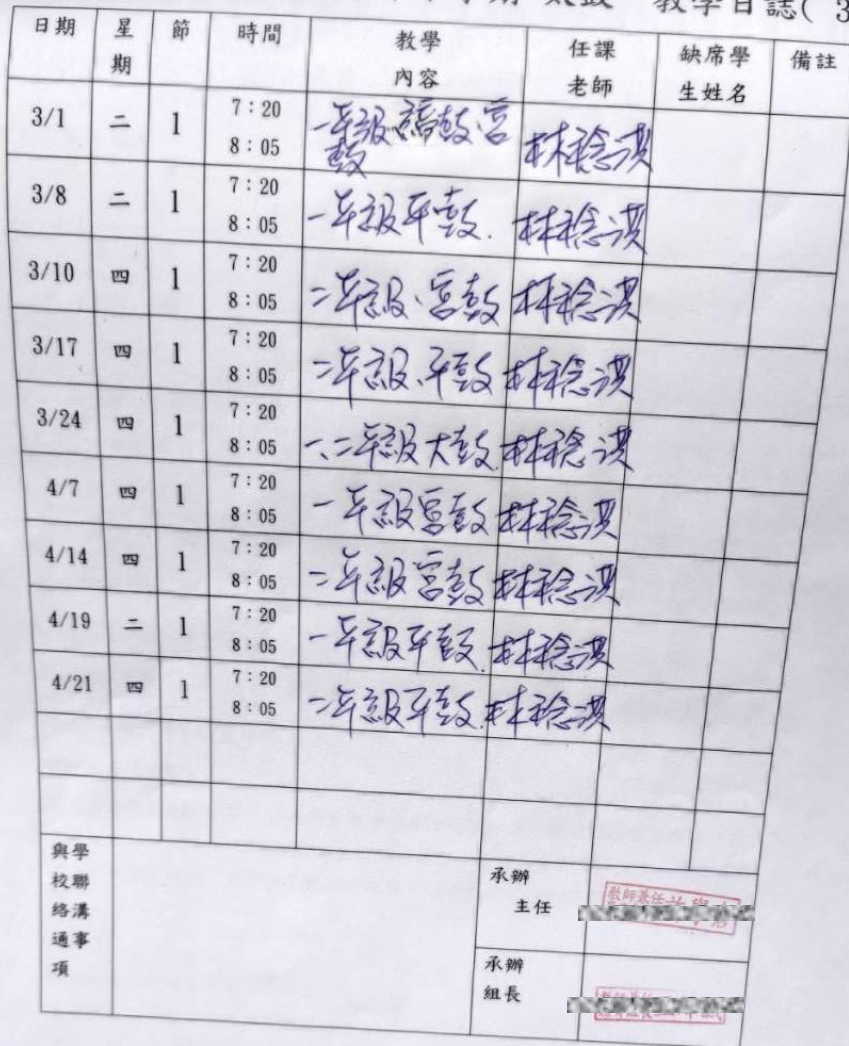 教學日誌( 3
日期 星期 節 時間 教學內容 任課老師 缺席學生姓名 備註
3/1 二 1 7:20 8:05 一年級 宮鼓 林稔淇
3/8 二 1 7:20 8:05 一年級平鼓. 林稔淇
3/10 四 1 7:20 8:05 二年級、宮鼓 林稔淇
3/17 四 1 7:20 8:05 二年級、平鼓 林稔淇
3/24 四 1 7:20 8:05 一、二年級大鼓 林稔淇
4/7 四 1 7:20 8:05 一年級宮鼓 林稔淇
4/14 四 1 7:20 8:05 二年級宮鼓 林稔淇
4/19 二 1 7:20 8:05 一年級平鼓. 林稔淇
4/21 四 1 7:20 8:05 二年級平鼓. 林稔淇
與學校聯絡溝通事項
承辦主任
教師兼任
承辦組長